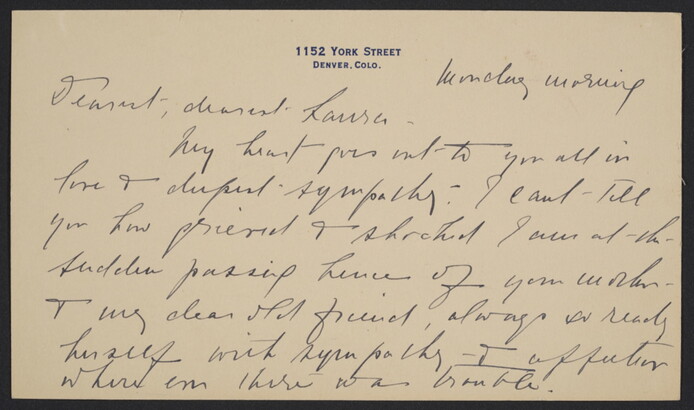 1152 York Street
Denver, Colo.
Monday morning
Dearest, dearest Laura -
My heart goes out to you all in
love & deepest sympathy. I cant tell
you how grieved & shocked I am at the
sudden passing hence of your mother
& my dear old friend, always so ready
herself with sympathy & affection
where ever there was trouble.